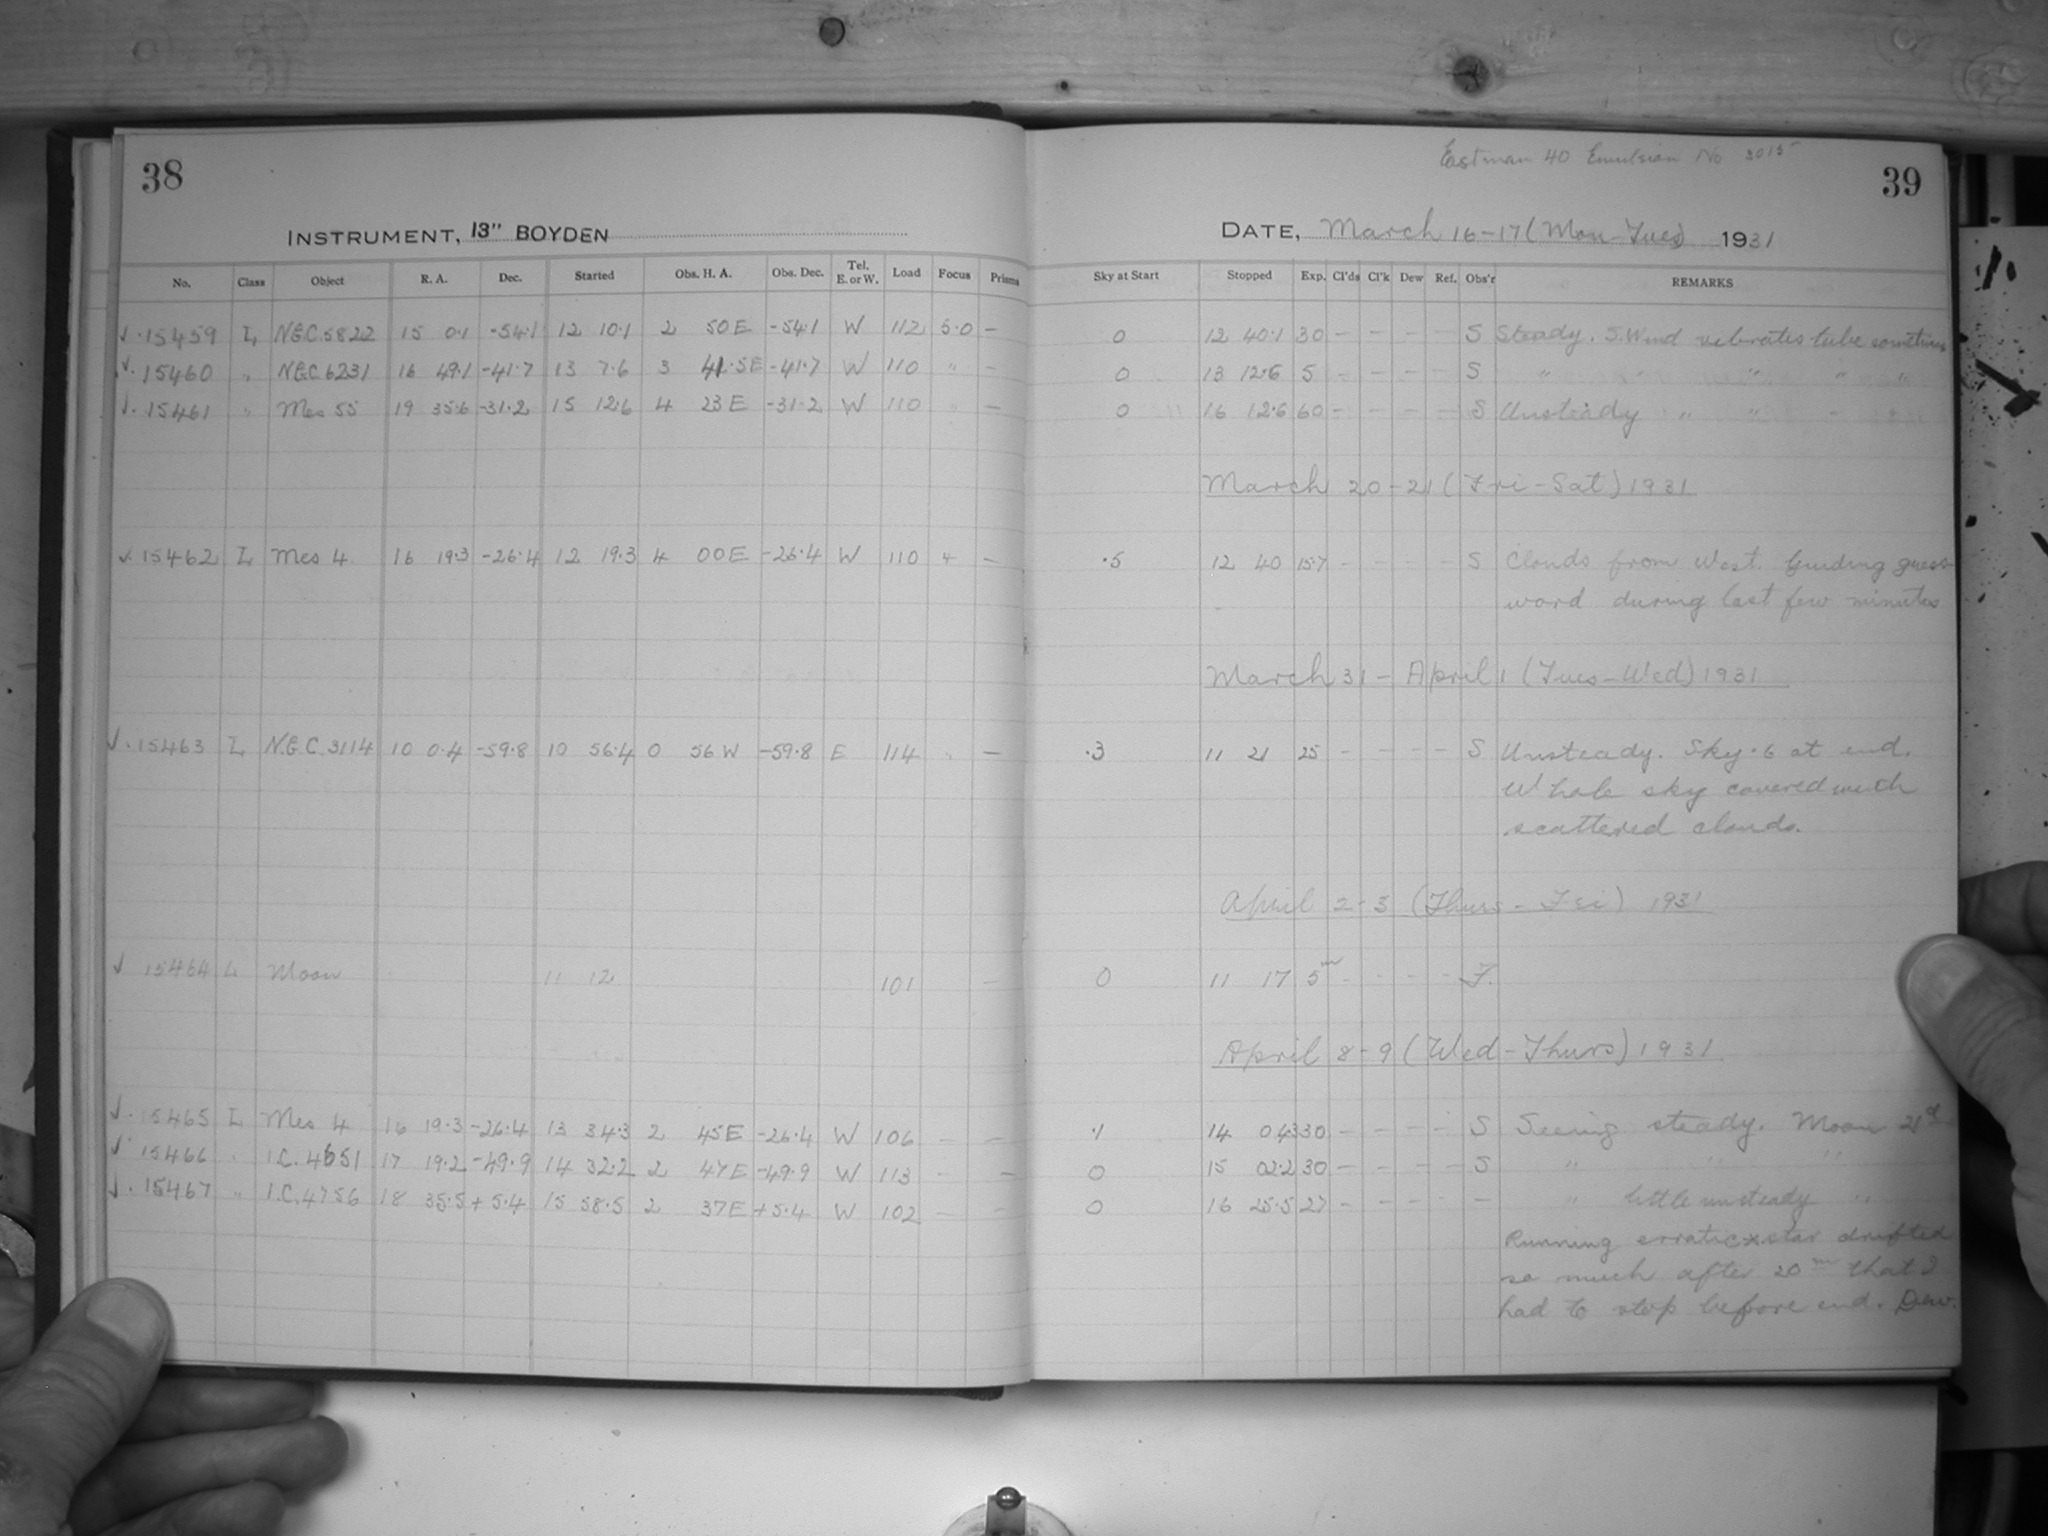 38
INSTRUMENT, 13" BOYDEN
No. Class Object R. A. Dec. Started Obs. H. A. Obs. Dec. Tel. E. or W. Load Focus Prisms
√ 15459 L N.G.C. 5822 15 0.1 -54.1 12 10.1 2 50 E -54.1 W 112 5.0 -
√ 15460 " N.G.C. 6231 16 49.1 -41.7 13 7.6 3 41.5 E -41.7 W 110 " -
√ 15461 " Mes 55 19 35.6 -31.2 15 12.6 4 23 E -31.2 W 110 " -
√ 15462 L Mes 4 16 19.3 -26.4 12 19.3 4 00 E -26.4 W 110 -
√ 15463 L N.G.C. 3114 10 0.4 -59.8 10 56.4 0 56 W -59.8 E 114 " -
√ 15464 L Moon 11 12 101 -
√ 15465 L Mes 4 16 19.3 -26.4 13 34.3 2 45 E -26.4 W 106 - -
√ 15466 " I.C. 4651 17 19.2 -49.9 14 32.2 2 47 E -49.9 W 113 - -
√ 15467 " I.C. 4756 18 35.5 +5.4 15 58.5 2 37 E +5.4 W 102 - -
Eastman 40 Emulsion No 3015
39
DATE, March 16-17 (Mon-Tues) 1931
Sky at Start Stopped Exp. Cl'ds Cl'k Dew Ref. Obs'r REMARKS
0 12 40.1 30 - - - - S Steady. S. Wind vibrates tube sometimes
0 13 12.6 5 - - - - S " " " " "
0 16 12.6 60 - - - - S Unsteady " " " "
March 20-21 (Fri-Sat) 1931
.5 12 40 15.7 - - - - S Clouds from West. Guiding guess
word during last few minutes
March 31 - April 1 (Tues-Wed) 1931
.3 11 21 25 - - - - S Unsteady. Sky .6 at end.
Whole sky covered with
scattered clouds.
April 2-3 (Thurs-Fri) 1931
0 11 17 5m - - - - F.
April 8-9 (Wed-Thurs) 1931
.1 14 04.3 30 - - - - S Seeing steady. Moon 21d
0 15 02.2 30 - - - - S " " "
0 16 25.5 27 - - - - - " little unsteady "
Running erratic & star drifted
so much after 20m that I
had to stop before end. Dew.